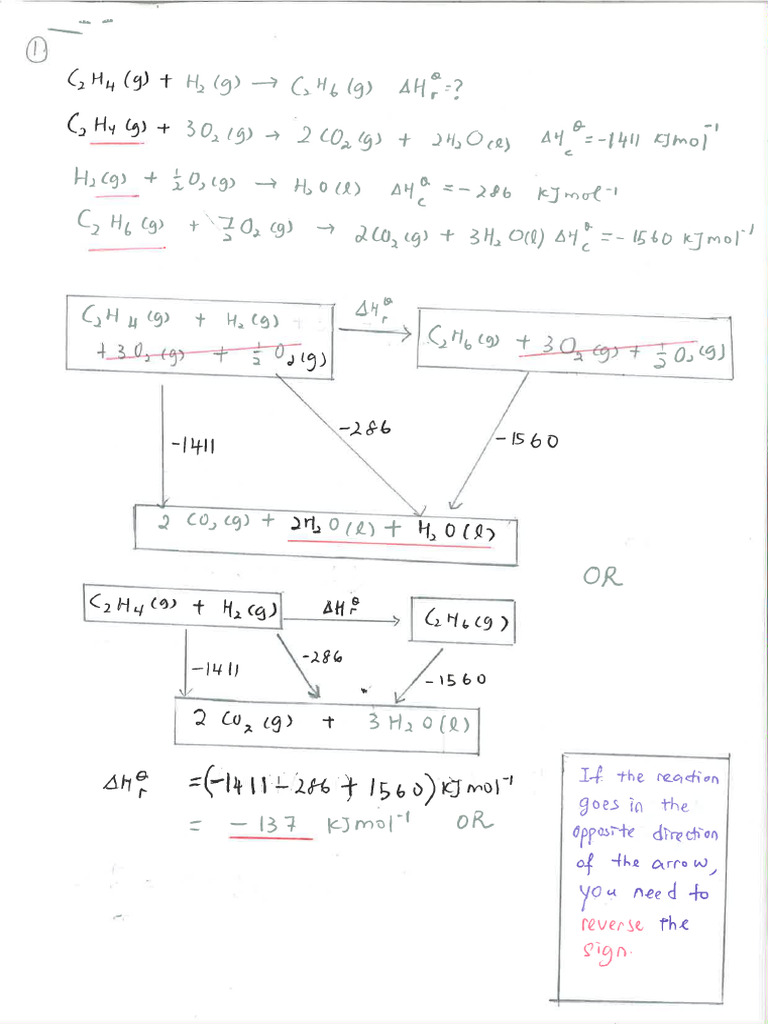 1
C₂H₄(g) + H₂(g) → C₂H₆(g) ΔHᵣ^θ = ?
C₂H₄(g) + 3O₂(g) → 2CO₂(g) + 2H₂O(l) ΔH_c^θ = -1411 KJmol⁻¹
H₂(g) + ½O₂(g) → H₂O(l) ΔH_c^θ = -286 KJmol⁻¹
C₂H₆(g) + 7/2O₂(g) → 2CO₂(g) + 3H₂O(l) ΔH_c^θ = -1560 KJmol⁻¹
C₂H₄(g) + H₂(g) ΔHᵣ^θ
+ 3O₂(g) + ½O₂(g)
C₂H₆(g) + 3O₂(g) + ½O₂(g)
-1411 -286 -1560
2CO₂(g) + 2H₂O(l) + H₂O(l)
OR
C₂H₄(g) + H₂(g) ΔHᵣ^θ C₂H₆(g)
-1411 -286 -1560
2CO₂(g) + 3H₂O(l)
ΔHᵣ^θ = (-1411 - 286 + 1560) KJmol⁻¹
= -137 KJmol⁻¹ OR
If the reaction
goes in the
opposite direction
of the arrow,
you need to
reverse the
sign.